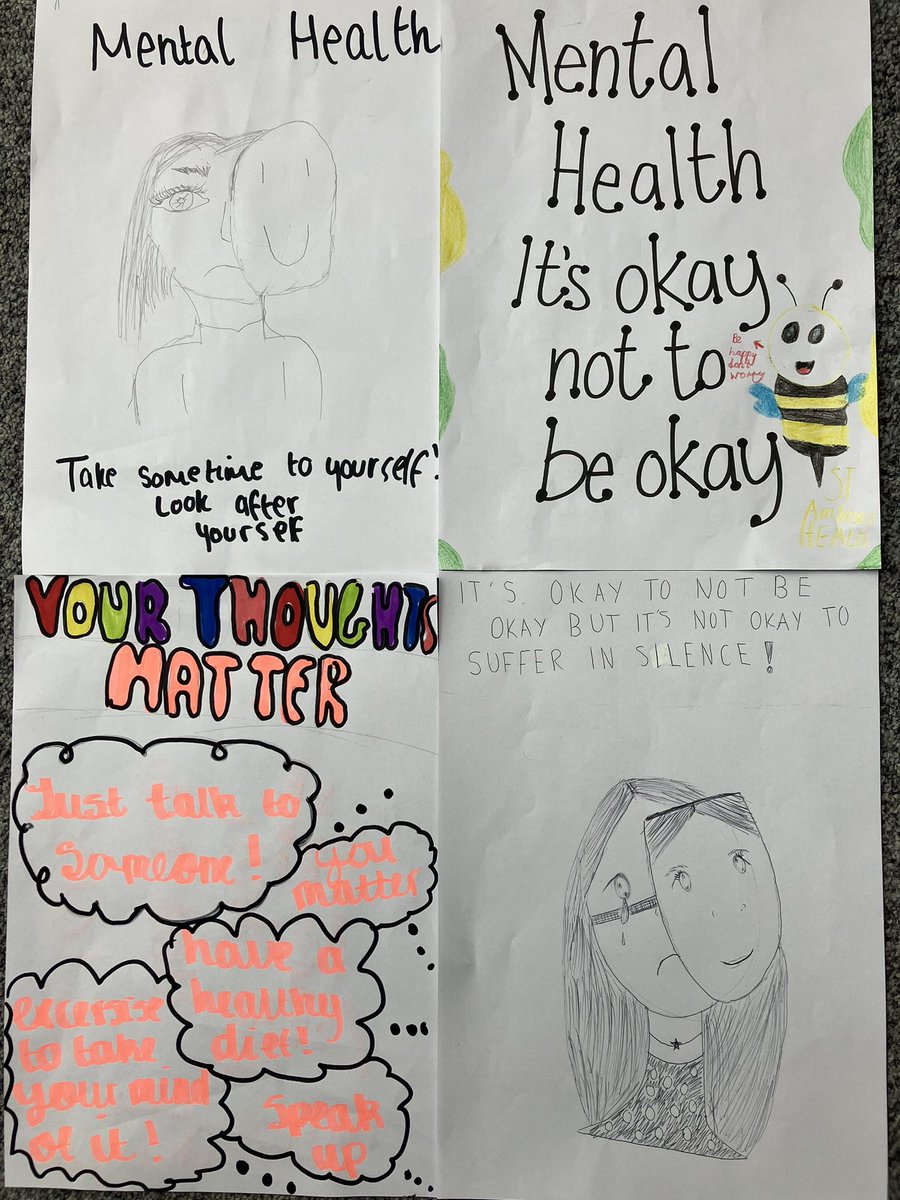 Mental Health
Take sometime to yourself!
Look after
yourself
Mental
Health
It's okay
not to
be okay
Be
happy
don't
worry
ST
HEALD
YOUR THOUGHTS
MATTER
Just talk to
someone!
you
matter
have a
healthy
diet!
excersise
to take
your mind
of it!
Speak
up
IT'S OKAY TO NOT BE
OKAY BUT IT'S NOT OKAY TO
SUFFER IN SILENCE!